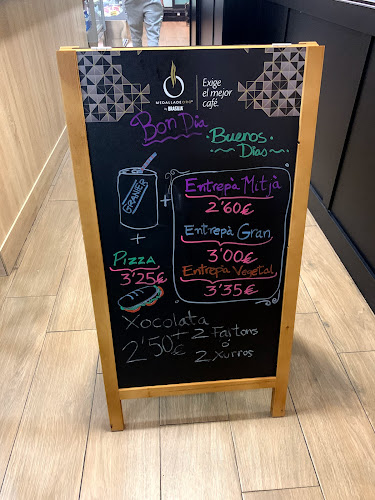 MEDALLA DE ORO®
by BRASILIA
Exige
el mejor
café.
Bon Dia
Buenos
Dias
GRANIER
+
+
Pizza
3'25€
Entrepà Mitjà
2'60€
Entrepà Gran
3'00€
Entrepa Vegetal
3'35€
Xocolata
2'50€
+
2 Fartons
ó
2 Xurros